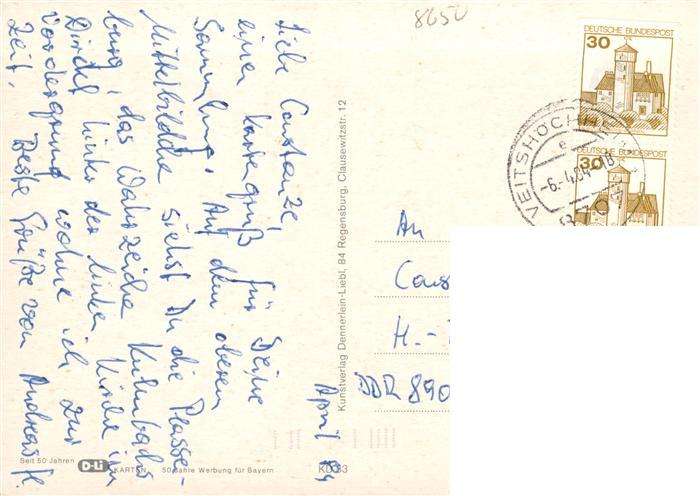 8650
DEUTSCHE BUNDESPOST
30
30
VEITSHÖCH
e
-6.-4.84-18
April 84
Liebe Constanze,
einen Kartengruß für Deine
Sammlung. Auf dem oberen
Mittelbildchen siehst Du die Plassen-
burg, das Wahrzeichen Kulmbachs
Direkt hinter der linken Kirche im
Vordergrund wohne ich zur
Zeit. Beste Grüße von Andreas H.
Kunstverlag Dennerlein-Liebl, 84 Regensburg, Clausewitzstr. 12
An
Cons
H.-
DDR 890
Seit 50 Jahren
D-Li
KARTEN 50 Jahre Werbung für Bayern
KD 33